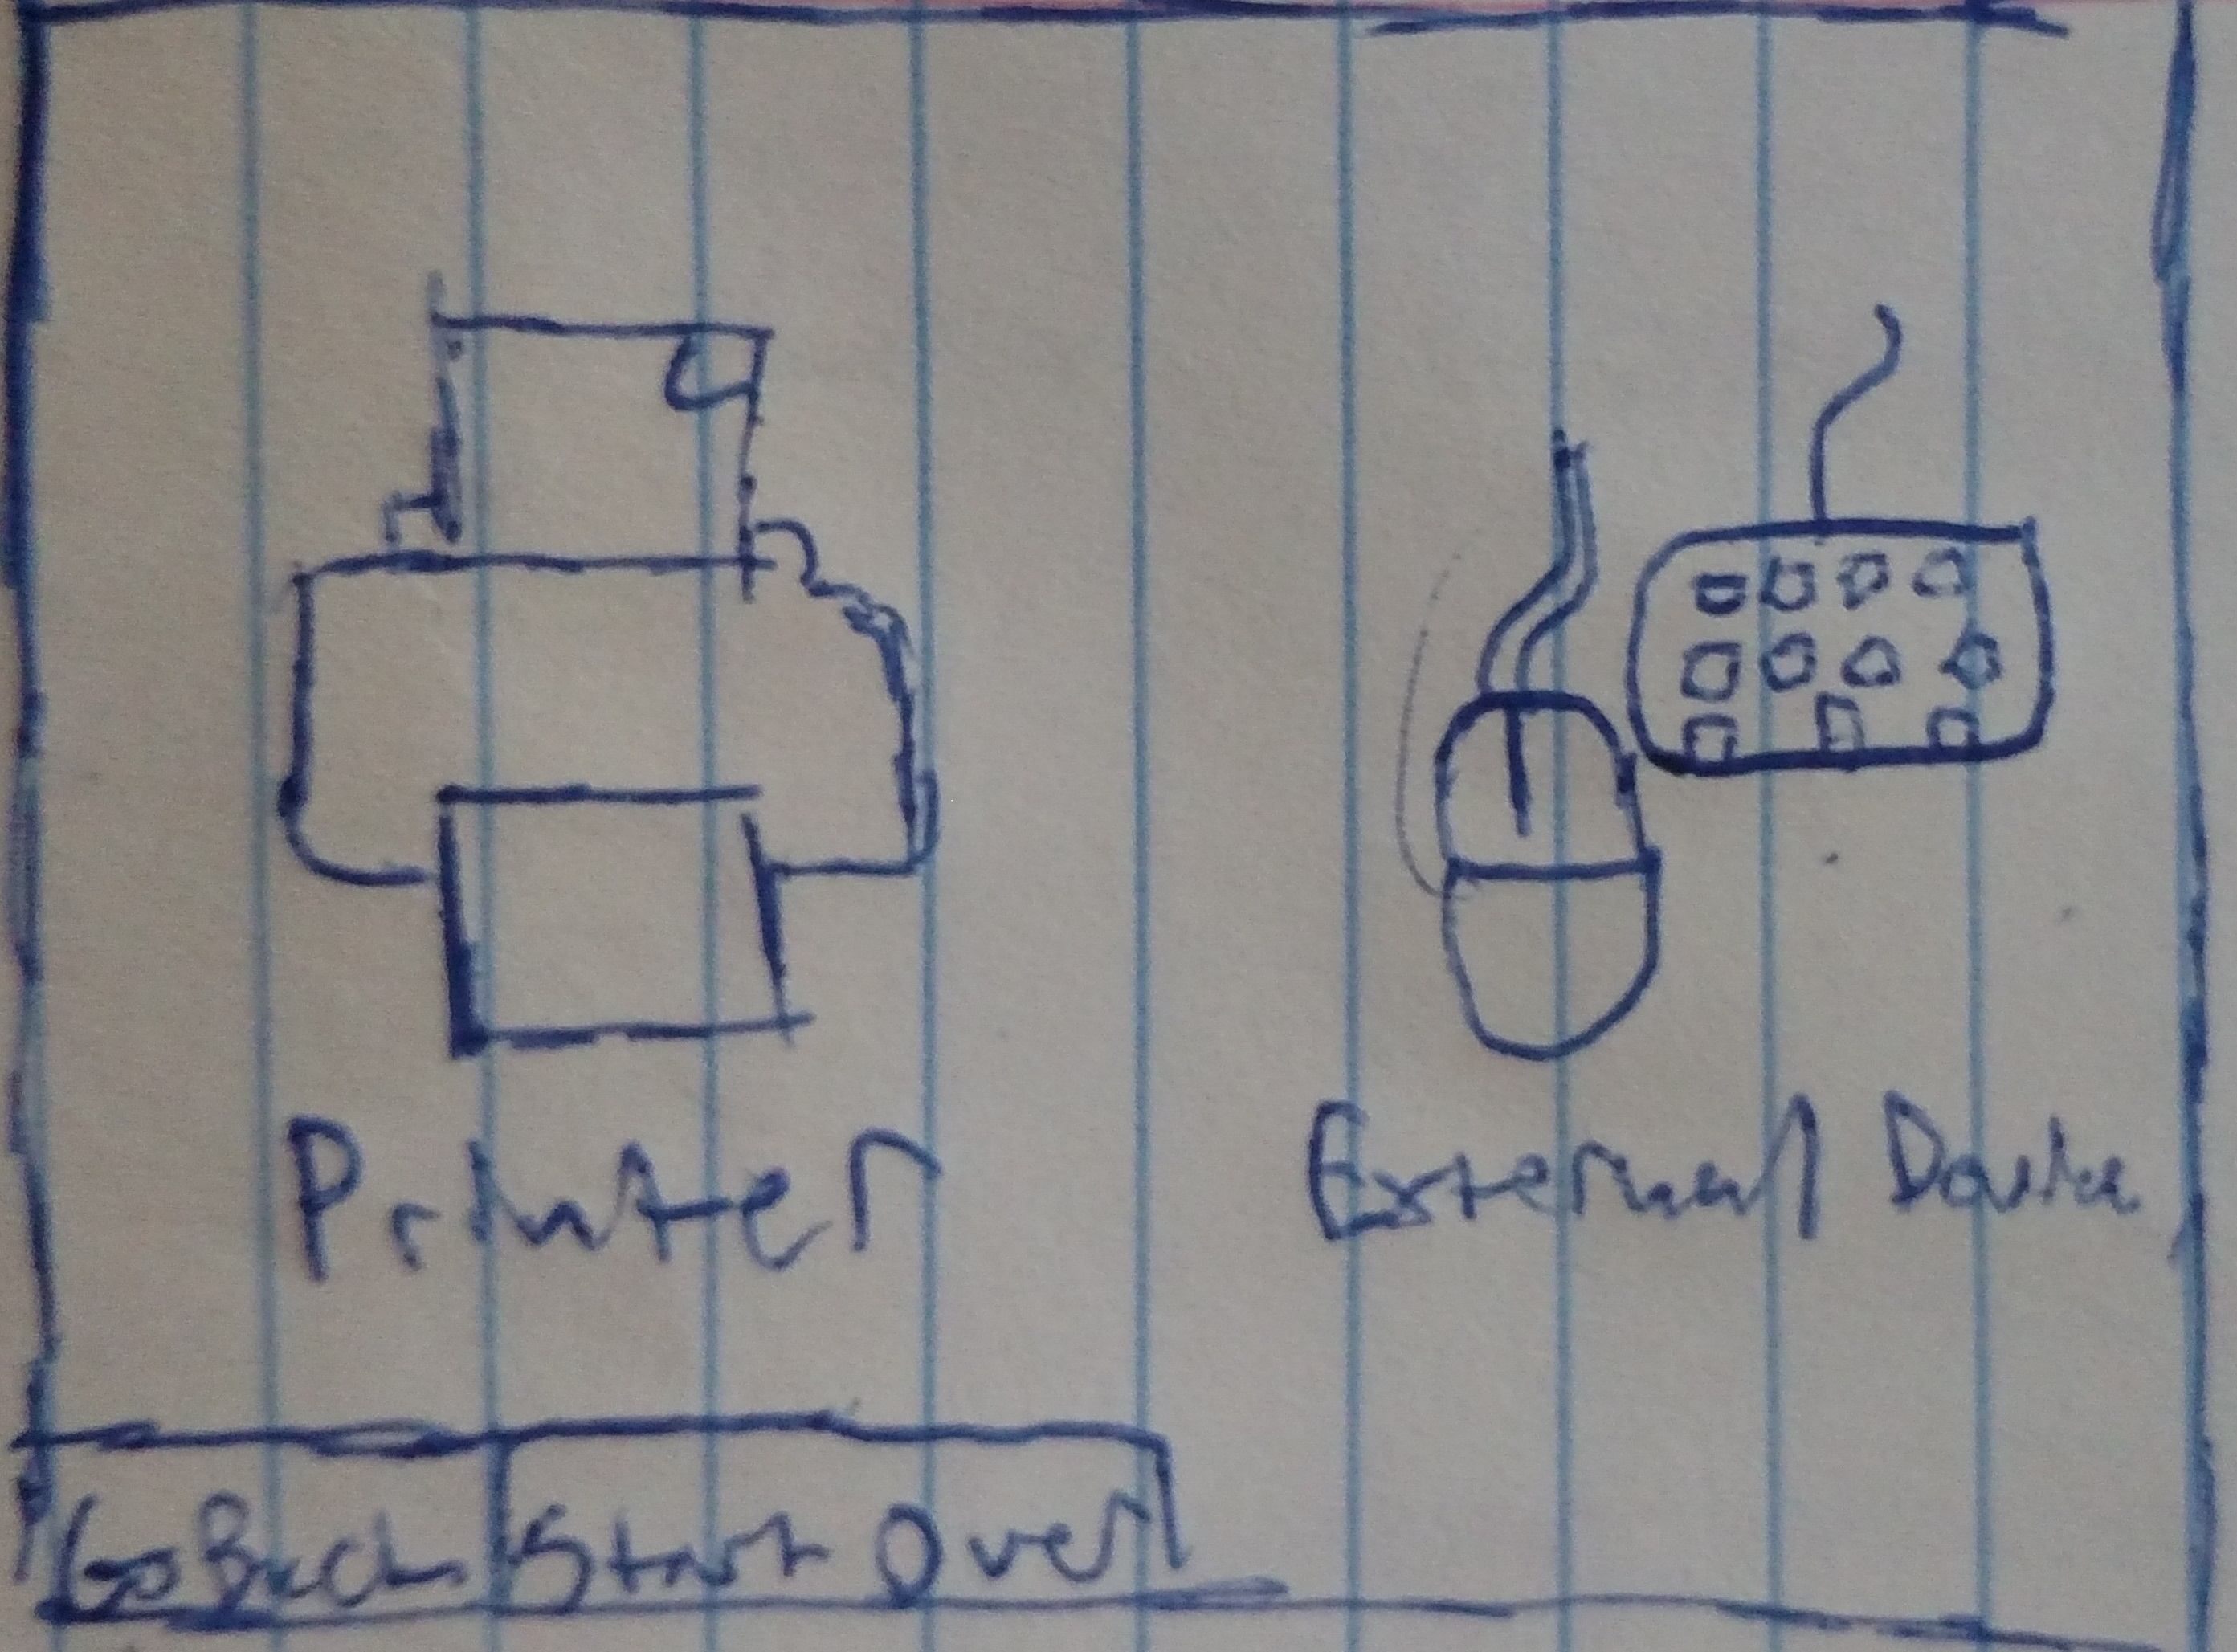 Printer
External Device
Go Back
Start Over